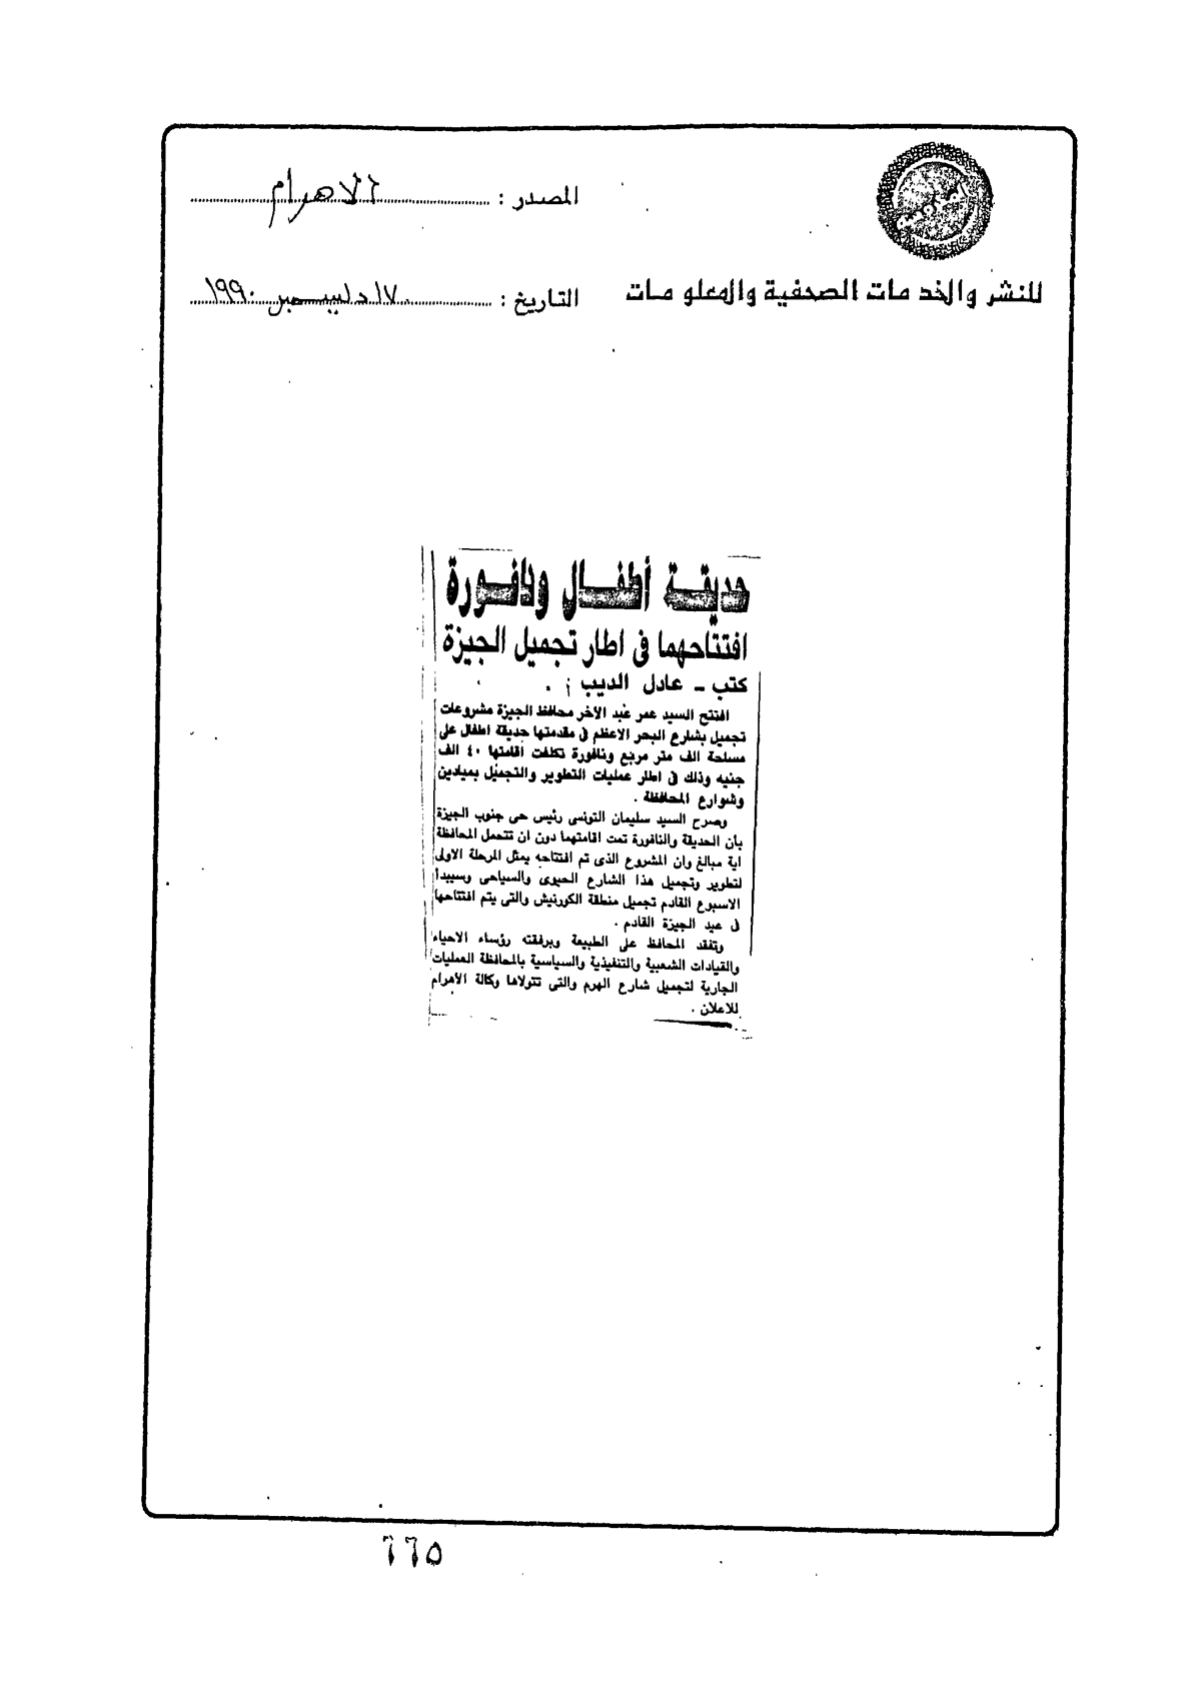 المصدر : الاهرام
للنشر والخدمات الصحفية والمعلومات
التاريخ : ١٧ ديسمبر ١٩٩٠
حديقة أطفال ونافورة
افتتاحهما فى اطار تجميل الجيزة
كتب - عادل الديب
افتتح السيد عمر عبد الآخر محافظ الجيزة مشروعات
تجميل بشارع البحر الاعظم فى مقدمتها حديقة اطفال على
مساحة الف متر مربع ونافورة تكلفت اقامتها ٤٠ الف
جنيه وذلك فى اطار عمليات التطوير والتجميل بميادين
وشوارع المحافظة .
وصرح السيد سليمان التونسى رئيس حى جنوب الجيزة
بأن الحديقة والنافورة تمت اقامتهما دون ان تتحمل المحافظة
اية مبالغ وان المشروع الذى تم افتتاحه يمثل المرحلة الاولى
لتطوير وتجميل هذا الشارع الحيوى والسياحى وسيبدأ
الاسبوع القادم تجميل منطقة الكورنيش والتى يتم افتتاحها
فى عيد الجيزة القادم .
وتفقد المحافظ على الطبيعة وبرفقته رؤساء الاحياء
والقيادات الشعبية والتنفيذية والسياسية بالمحافظة العمليات
الجارية لتجميل شارع الهرم والتى تتولاها وكالة الأهرام
للاعلان .
٦٦٥